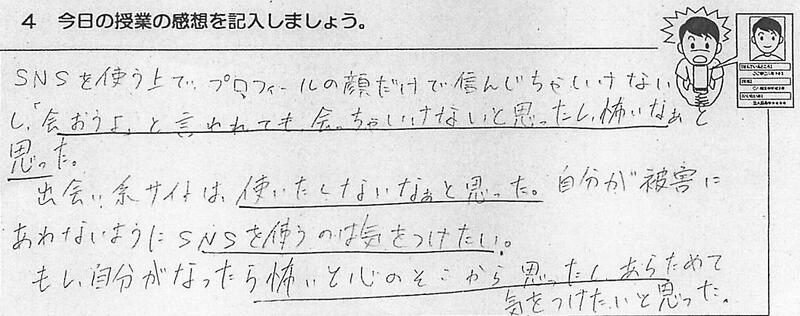 4 今日の授業の感想を記入しましょう。
SNSを使う上で、プロフィールの顔だけで信んじちゃいけない
し、「会おうよ」と言われても、会っちゃいけないと思ったし、怖いなぁと
思った。
出会い系サイトは、使いたくないなぁと思った。自分が被害に
あわないようにSNSを使うのは気をつけたい。
もし、自分がなったら怖いと心のそこから思ったし、あらためて
気をつけたいと思った。